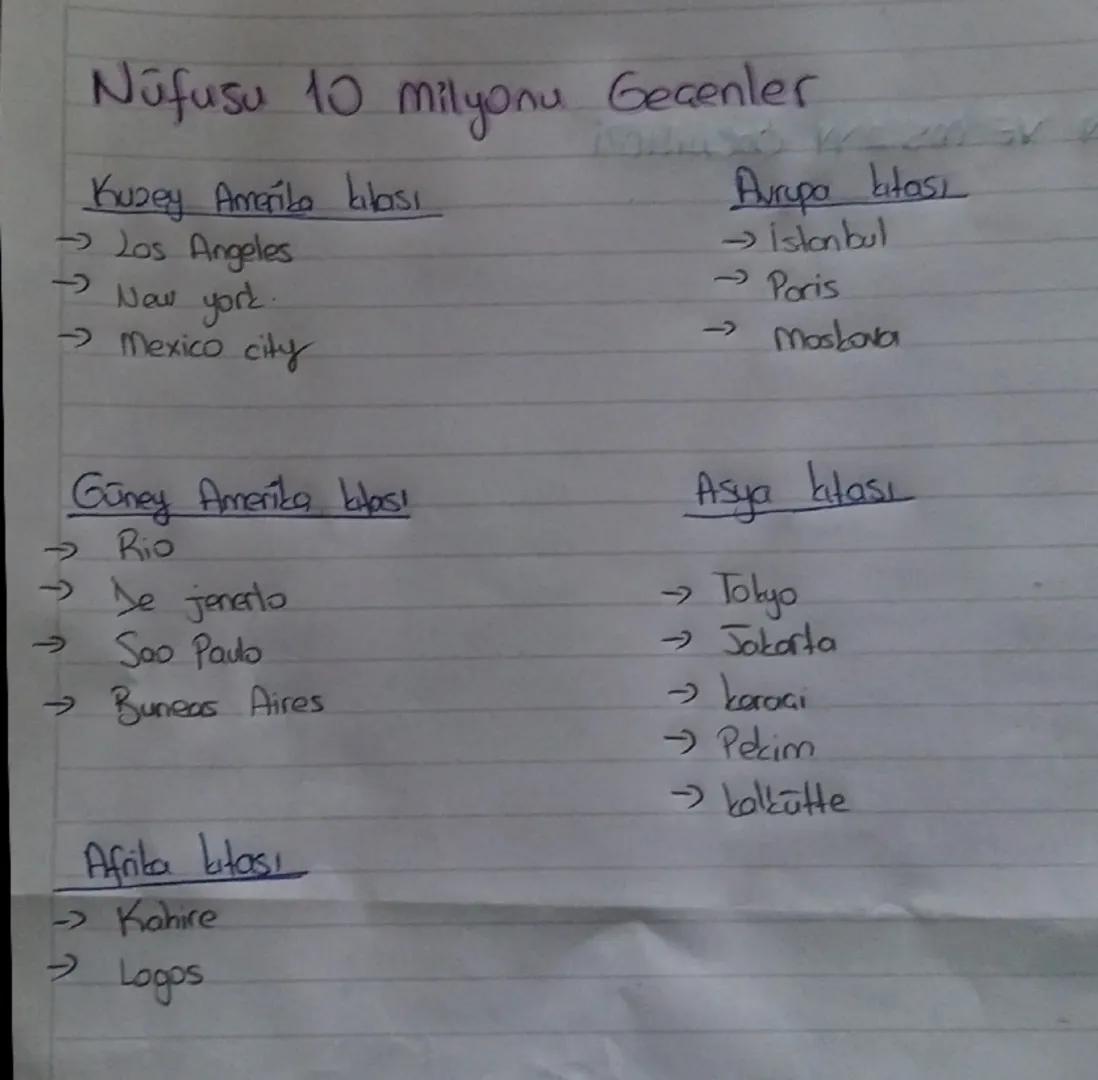 Nüfusu 10 milyonu Geçenler
Kuzey Amerika kıtası
→ Los Angeles
→ New york.
→ Mexico city
Avrupa kıtası
→ İstanbul
→ Paris
→ Moskova
Güney Amerika kıtası
→ Rio
→ De jenerlo
→ Sao Paulo
→ Buneas Aires
Asya kıtası
→ Tokyo
→ Jakarta
→ karaçi
→ Pekim
→ kalkütte
Afrika kıtası
→ Kahire
→ Lagos